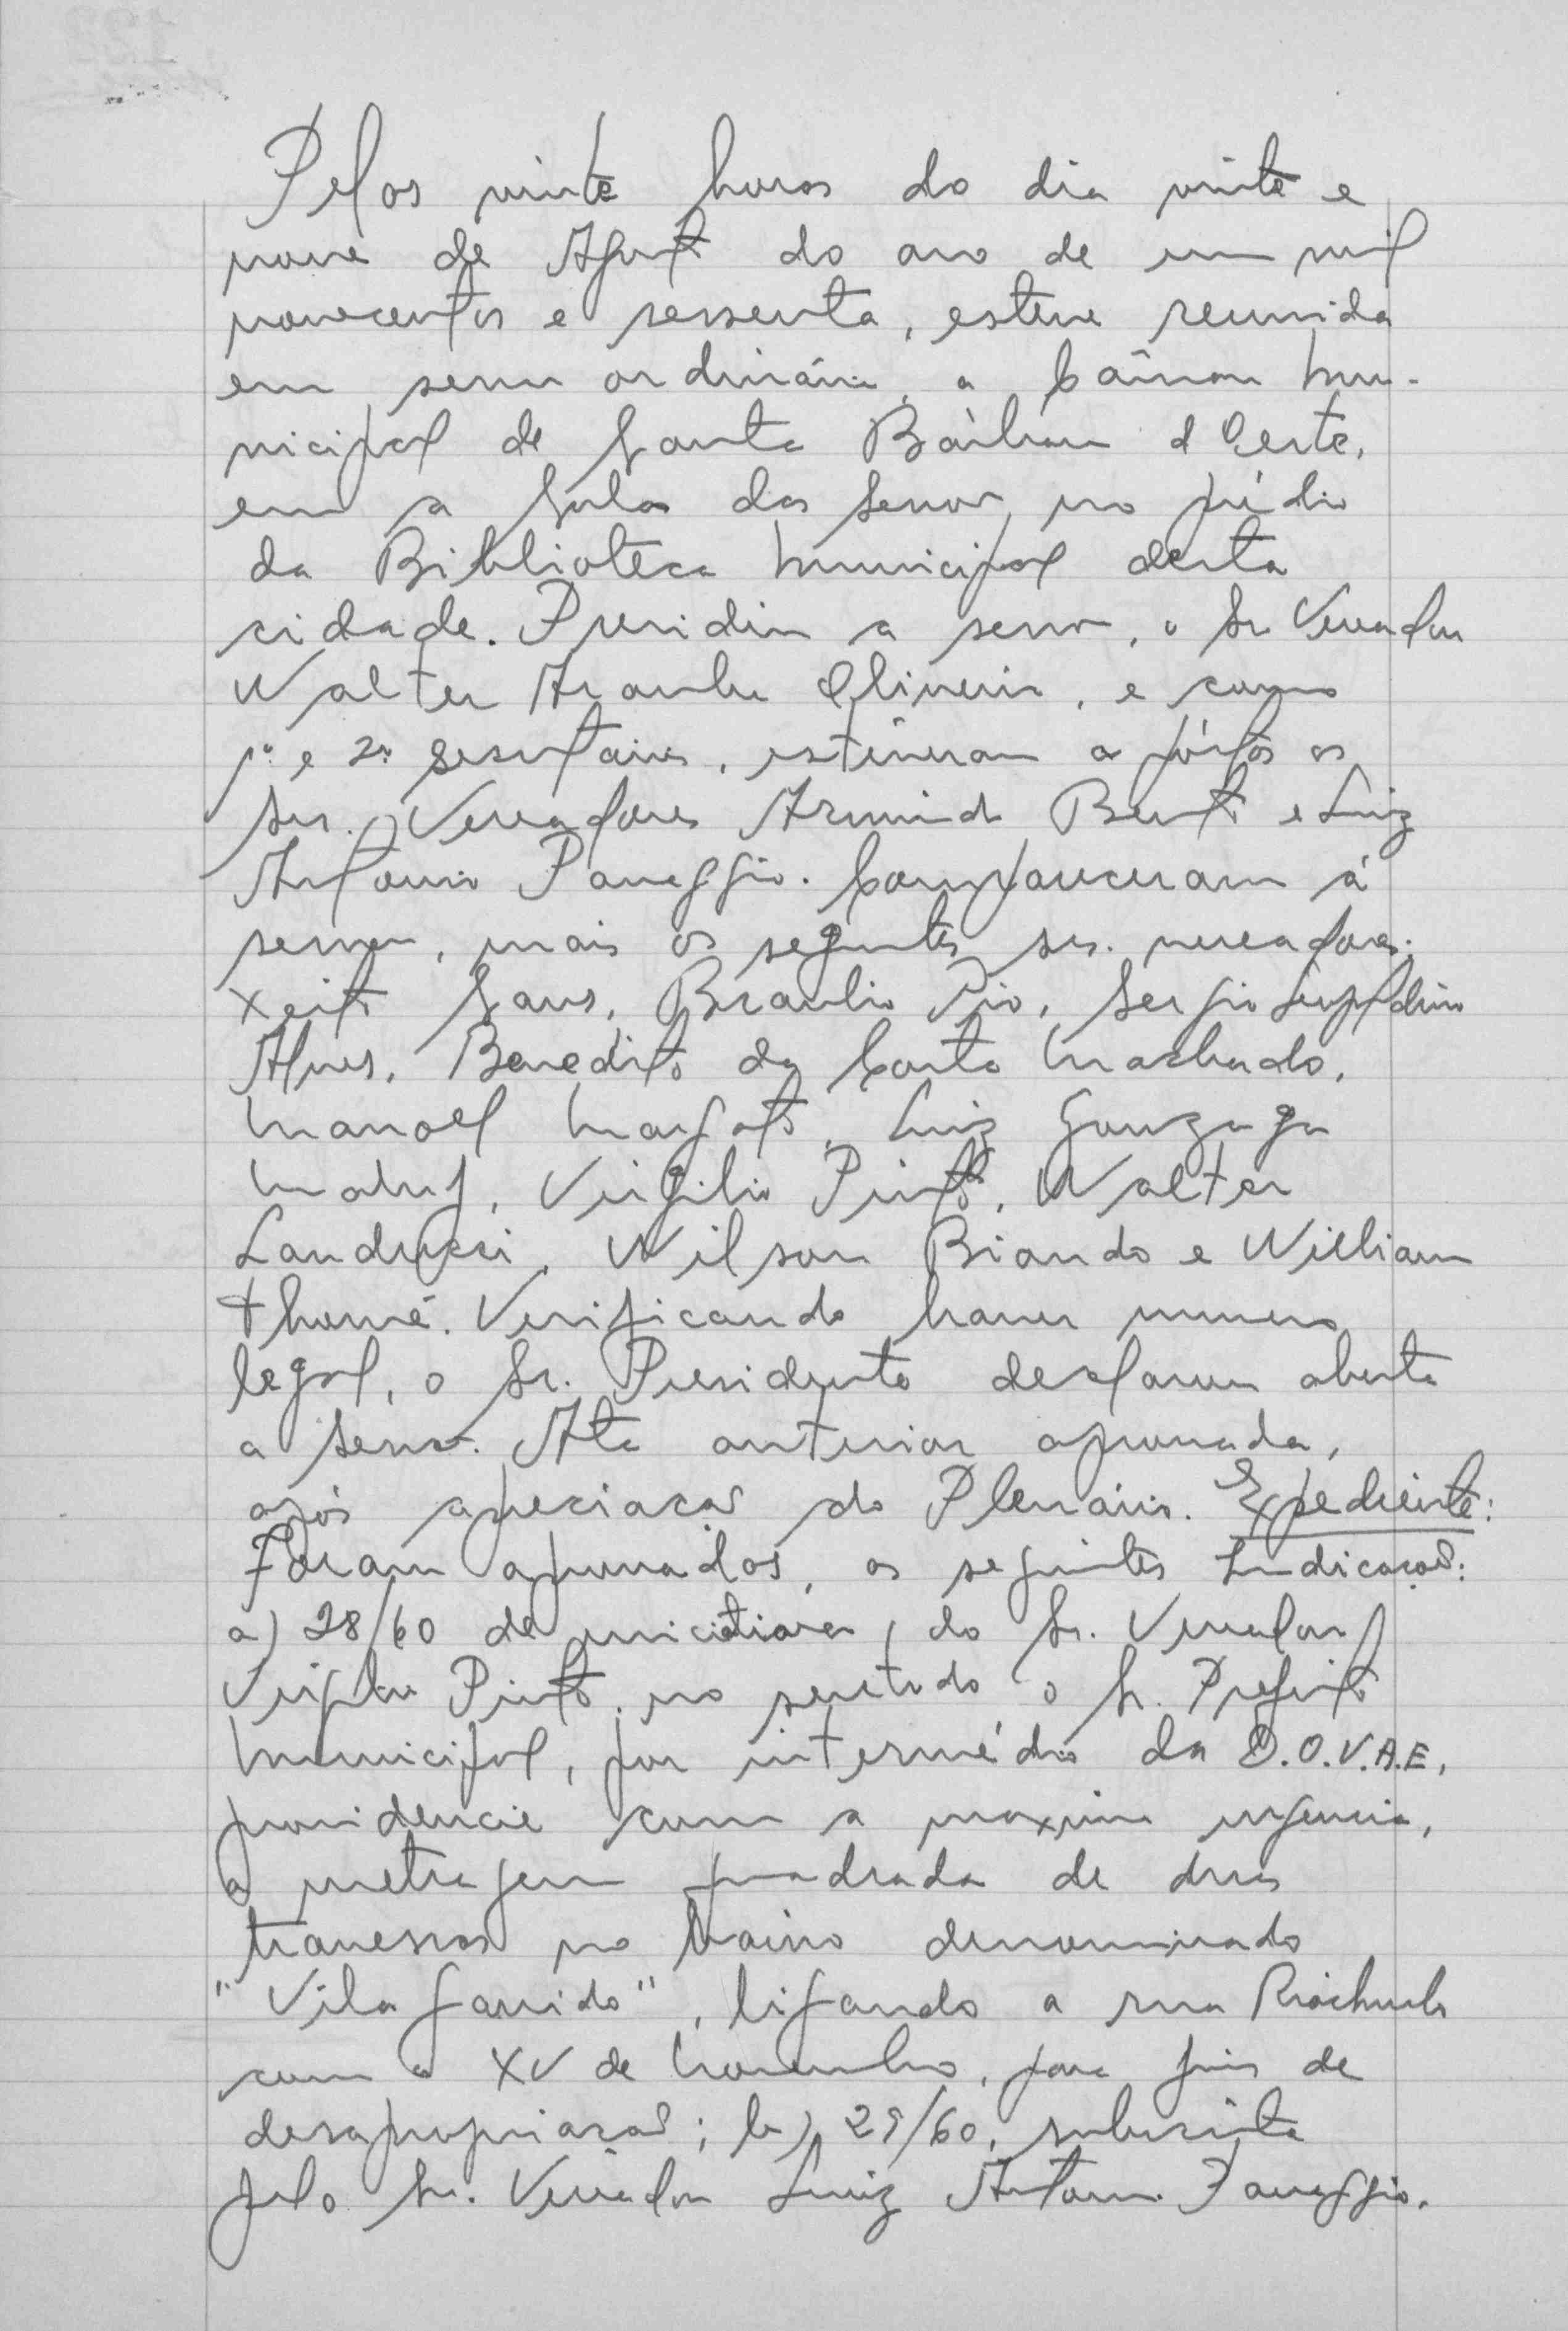 Pelas vinte horas do dia vinte e
nove de Agosto do ano de um mil
novecentos e sessenta, esteve reunida
em sessão ordinária, a Câmara Mu-
nicipal de Santa Bárbara d'Oeste,
em a Sala das Sessões, no prédio
da Biblioteca Municipal desta
cidade. Presidiu a sessão, o Sr. Vereador
Walter Aranha Oliveira, e como
1º e 2º secretários, estiveram a póstos os
Srs. Vereadores Armindo Bento e Luiz
Antonio Panaggio. Compareceram á
sessão, mais os seguintes srs. vereadores:
Xeito Sans, Braulio Pio, Sergio Leopoldino
Alves, Benedito da Costa Machado,
Manoel, Luiz Gonzaga
Maluf, Virgilio Pinto, Walter
Landucci, Wilson Biondo e William
Thomé. Verificando haver numero
legal, o Sr. Presidente declarou aberta
a sessão. Ata anterior aprovada,
após apreciação do Plenário. Expediente:
Foram aprovados, as seguintes Indicações:
a) 28/60 de iniciativa, do Sr. Vereador
Virgilio Pinto, no sentido o Sr. Prefeito
Municipal, por intermédio da D.O.V.A.E,
providencie com a maxima urgencia,
a metragem quadrada de duas
travessas no bairro denominado
"Vila Garrido", ligando a rua Riachuelo
com a XV de Novembro, para fins de
desapropriação; b) 29/60, subscrita
pelo Sr. Vereador Luiz Antonio Panaggio,